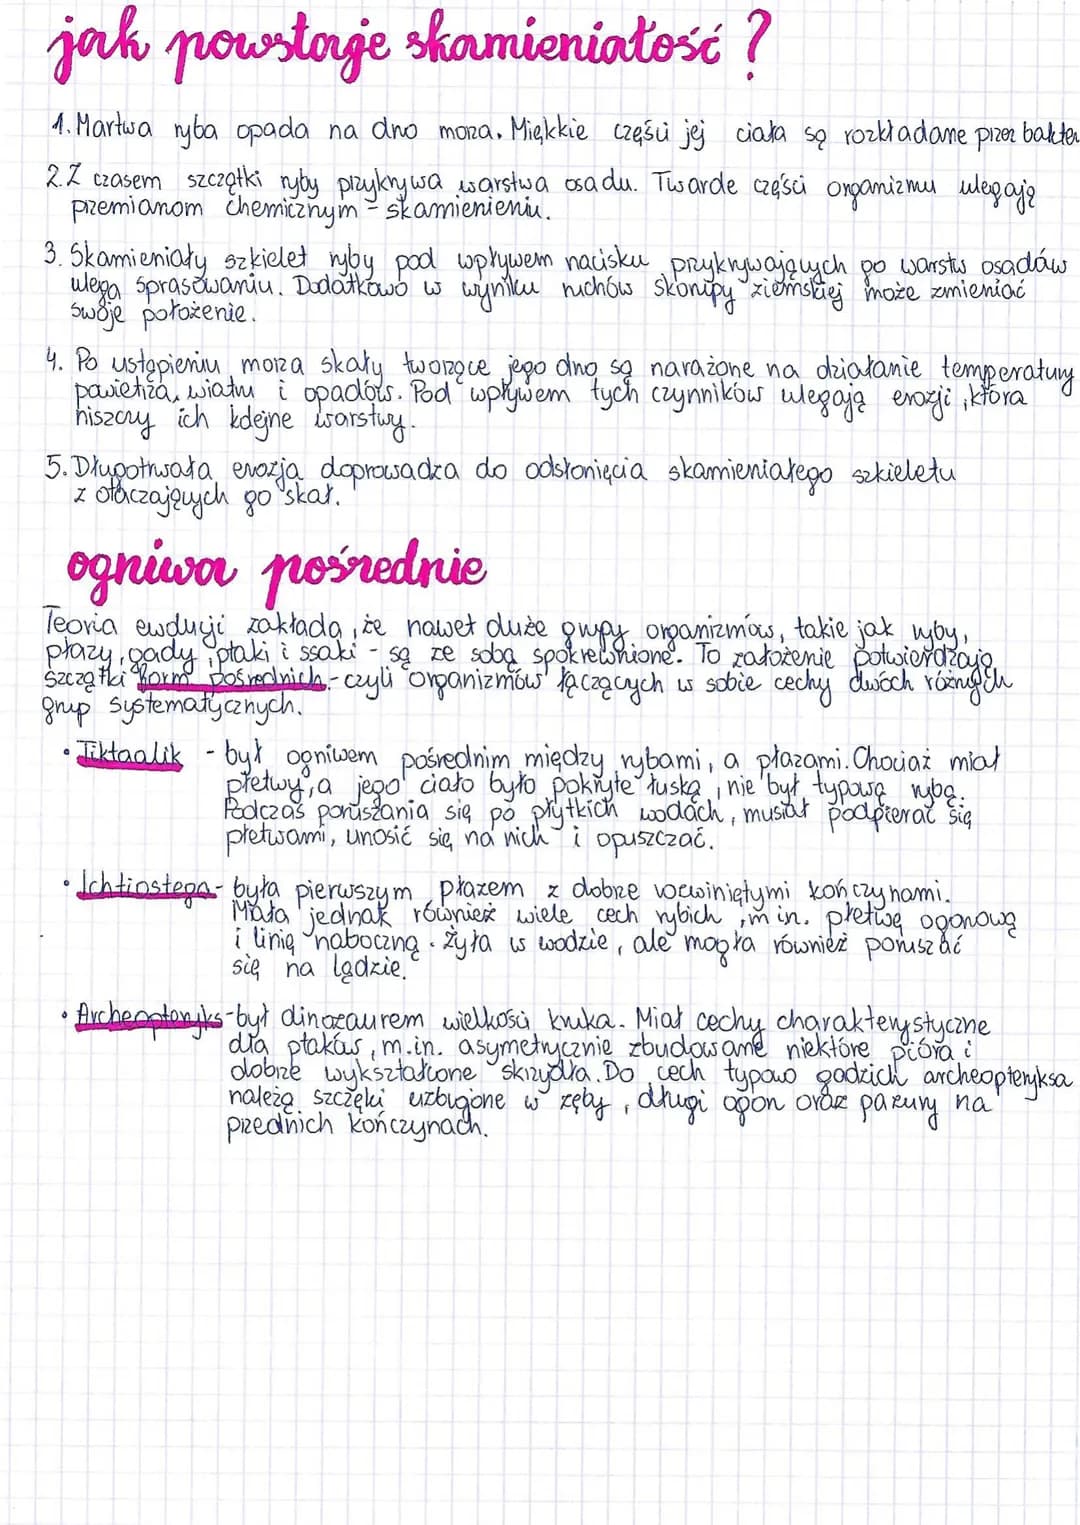 jak powstaje skamieniałość ?
1. Martwa ryba opada na dno morza. Miękkie części jej ciała są rozkładane przez bakter
2. Z czasem szczątki ryby przykrywa warstwa osadu. Twarde części organizmu ulegają
przemianom chemicznym - skamienieniu.
3. Skamieniały szkielet ryby pod wpływem nacisku przykrywających go warstw osadów
ulega sprasowaniu. Dodatkowo w wyniku ruchów skorupy ziemskiej może zmieniać
swoje położenie.
4. Po ustąpieniu morza skały tworzące jego dno są narażone na działanie temperatury
powietrza, wiatru i opadów. Pod wpływem tych czynników ulegają erozji, która
niszczy ich kolejne warstwy.
5. Długotrwała erozja doprowadza do odsłonięcia skamieniałego szkieletu
z otaczających go skał.
ogniwa pośrednie
Teoria ewolucji zakłada, że nawet duże grupy organizmów, takie jak ryby,
płazy, gady, ptaki i ssaki - są ze sobą spokrewnione. To założenie potwierdzają
szczątki form pośrednich - czyli organizmów łączących w sobie cechy dwóch różnych
grup systematycznych.
• Tiktaalik - był ogniwem pośrednim między rybami, a płazami. Chociaż miał
płetwy, a jego ciało było pokryte łuską, nie był typową rybą.
Podczas poruszania się po płytkich wodach, musiał podpierać się
płetwami, unosić się na nich i opuszczać.
• Ichtiostega - była pierwszym płazem z dobrze rozwiniętymi kończynami.
Miała jednak również wiele cech rybich, m in. płetwę ogonową
i linię naboczną. Żyła w wodzie, ale mogła również poruszać
się na lądzie.
• Archeopteryks - był dinozaurem wielkości kruka. Miał cechy charakterystyczne
dla ptaków, m.in. asymetrycznie zbudowane niektóre pióra i
dobrze wykształcone skrzydła. Do cech typowo gadzich archeopteryksa
należą szczęki uzbrojone w zęby, długi ogon oraz pazury na
przednich kończynach.